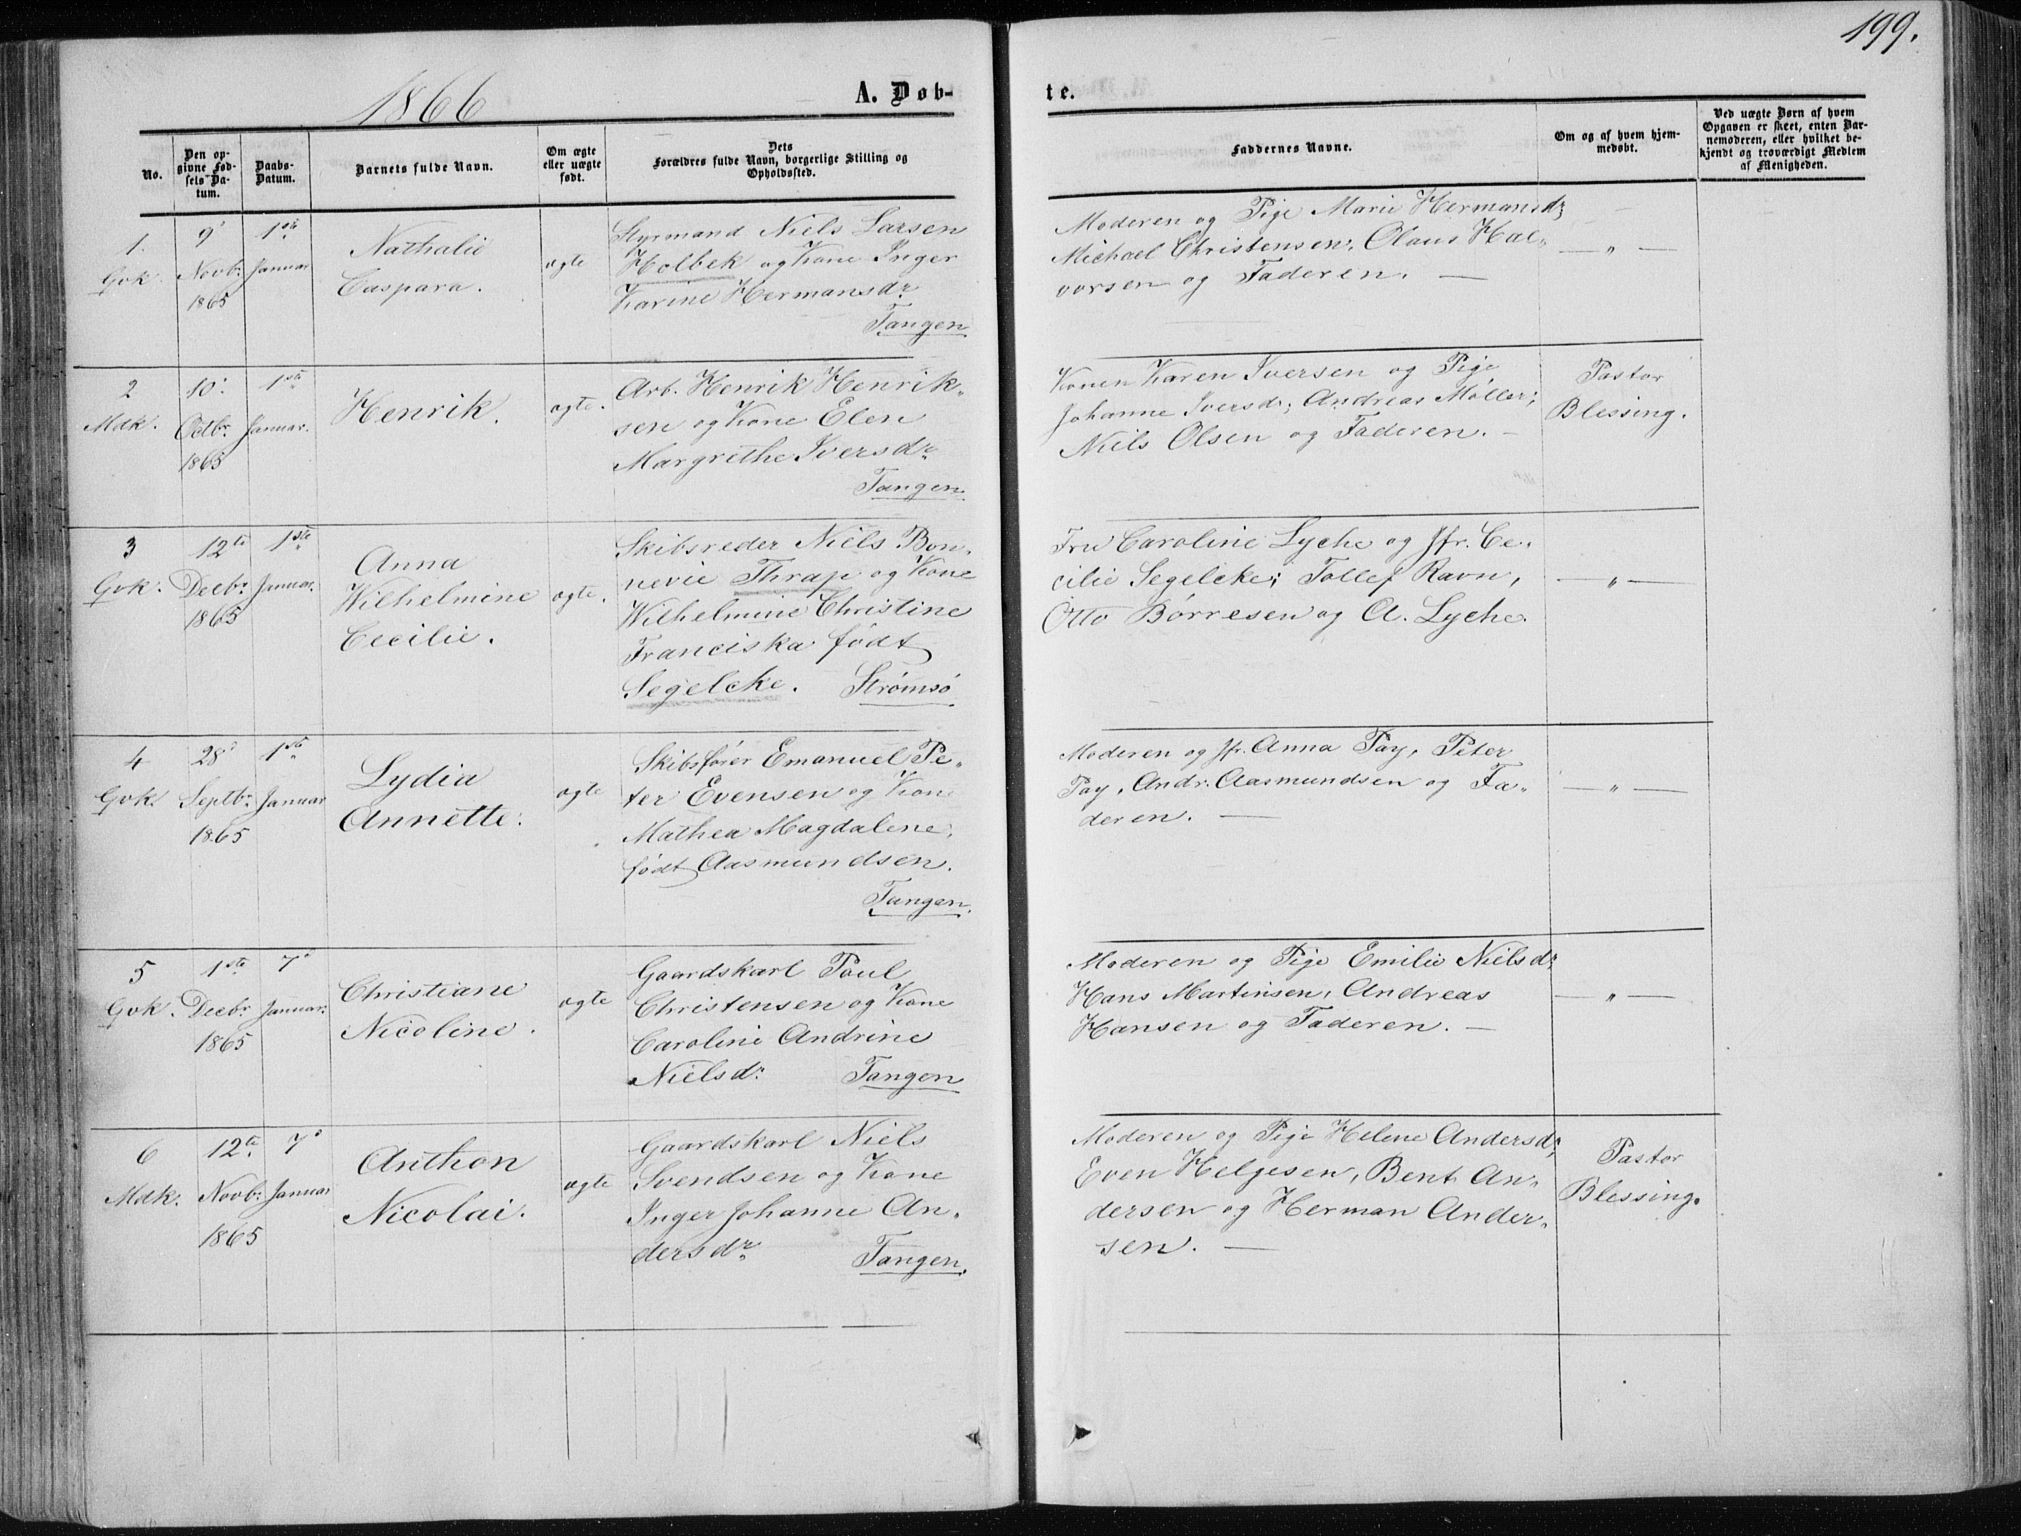 199.
1866
A. Døb-
te.
No.
Den op-
givne Fød-
sels Da-
tum.
Daabs-
Datum.
Barnets fulde Navn.
Om ægte
eller uægte
født.
Dets
Forældres fulde Navn, borgerlige Stilling og
Opholdssted.
Faddernes Navne.
Om og af hvem hjem-
medøbt.
Ved uægte Børn af hvem
Opgaven er skeet, enten Bar-
nemoderen, eller hvilket be-
kjendt og troværdigt Medlem
af Menigheden.
1.
Gvk.
9d
Novbr.
1865
1ste
Januar
Nathalie
Caspara.
ægte
Styrmand Niels Larsen
Holbek og Kone Inger
Karine Hermansdr.
Tangen
Moderen og Pige Marie Hermansdr;
Michael Christensen, Olaus Hal-
vorsen og Faderen. —
— „ —
2
Mdk.
10.
Octbr.
1865
1ste
Januar.
Henrik.
ægte.
Arb. Henrik Henrik-
sen og Kone Elen
Margrethe Iversdr.
Tangen.
Konen Karen Iversen og Pige
Johanne Iversdr; Andreas Møller;
Niels Olsen og Faderen. —
Pastor
Blessing.
3
Gvk.
12te
Decbr.
1865
1ste
Januar.
Anna
Wilhelmine
Cecilie.
ægte.
Skibsreder Niels Bon-
nevie Thrap og Kone
Wilhelmine Christine
Franciska født
Segelcke. Strømsø
Fru Caroline Lyche og Jfr. Ce-
cilie Segelcke; Tollef Ravn,
Otto Børresen og A. Lyche.
— „ —
4
Gvk.
28d
Septbr.
1865
1ste
Januar
Lydia
Annette.
ægte
Skibsfører Emanuel Pe-
ter Evensen og Kone
Mathea Magdalene,
født Aasmundsen.
Tangen.
Moderen og Jfr. Anna Pay, Peter
Pay, Andr. Aasmundsen og Fa-
deren. —
— „ —
5
Gvk.
1ste
Decbr.
1865
7d
Januar.
Christiane
Nicoline.
ægte
Gaardskarl Poul
Christensen og Kone
Caroline Andrine
Nielsdr. Tangen
Moderen og Pige Emilie Nielsdr.
Hans Martinsen, Andreas
Hansen og Faderen. —
— „ —
6
Mdk.
12te
Novbr.
1865
7d
Januar
Anthon
Nicolai.
ægte
Gaardskarl Niels
Svendsen og Kone
Inger Johanne An-
dersdr. Tangen.
Moderen og Pige Helene Andersdr;
Even Helgesen, Bent An-
dersen og Herman Ander-
sen. —
Pastor
Blessing.